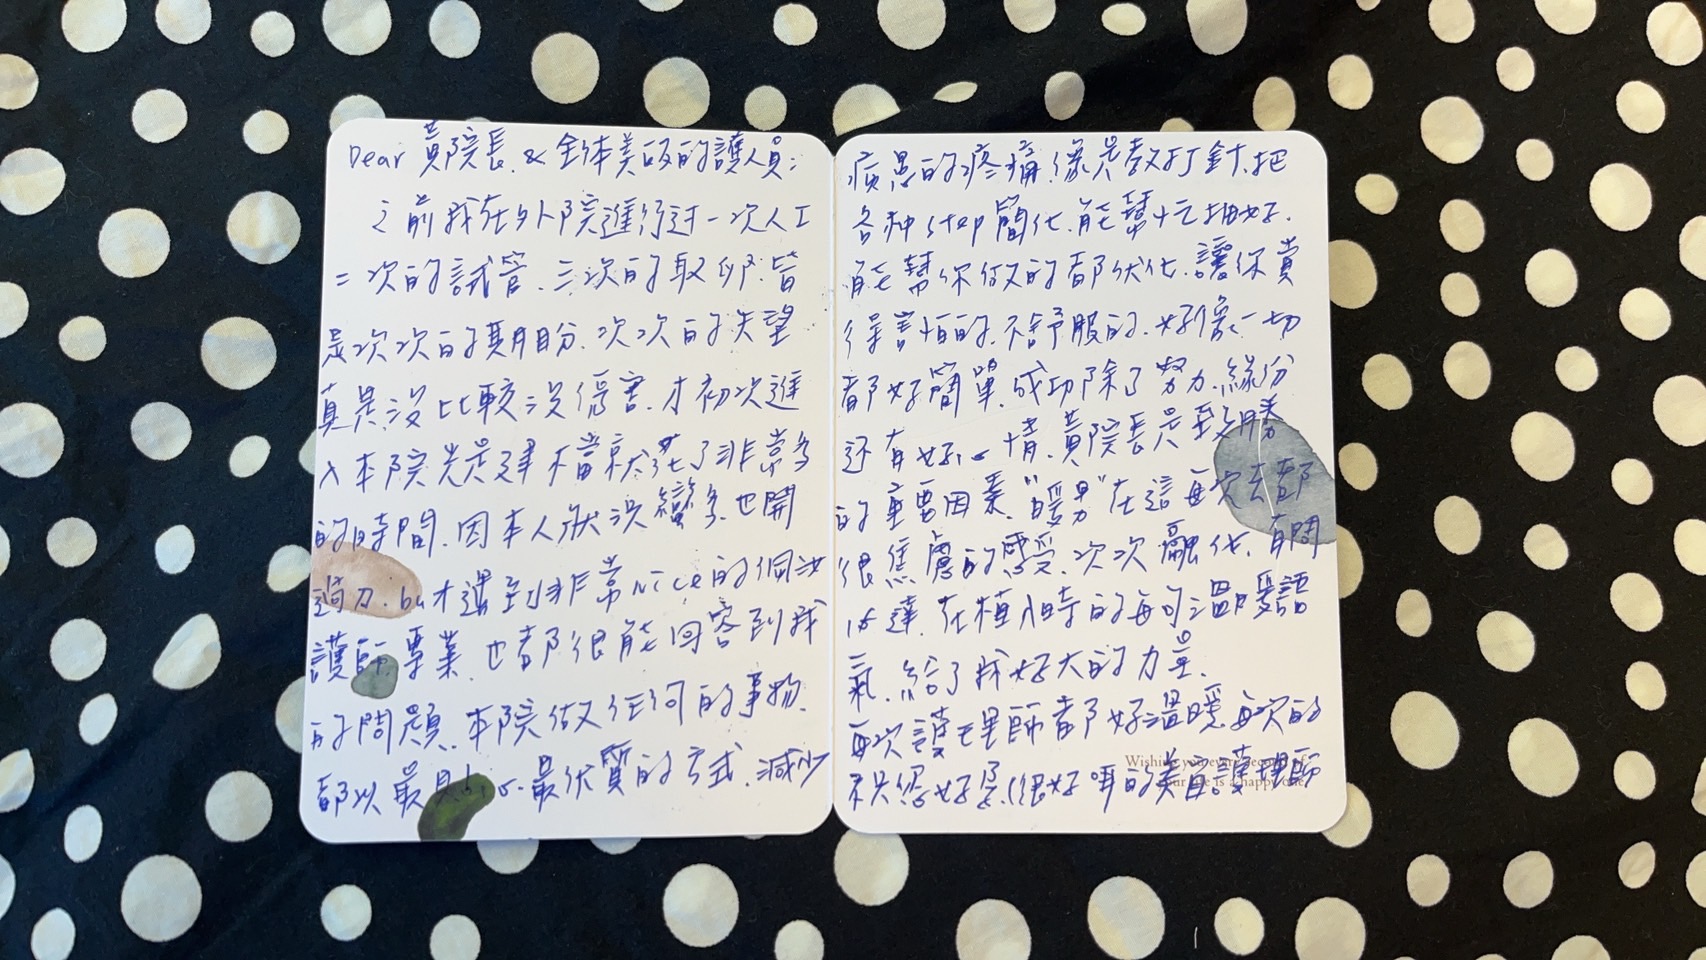 Dear 黃院長 & 全体美目的護人員:
之前我在外院進行过一次人工
二次的試管、三次的取卵、皆
是次次的期盼、次次的失望
真是没比較没傷害、才初次進
入本院光是建檔就花了非常多
的時間、因本人狀況蠻多、也開
過刀、but 遇到非常nice的個管
護師、專業、也都很能回答到我
的問題、本院做任何的事物、
都以最貼心、最优質的方式、減少
病患的疼痛、像是教打針、把
各种step簡化、能幫忙抽好、
能幫你做的都优化、讓你賞
得害怕的、不舒服的、好像一切
都好簡單、成功除了努力、緣份
还有好心情、黃院長是致勝
的重要因素、"暖男"在這每次去都
很焦慮的感受、次次融化、有問
必達、在植入時的每句溫暖語
氣、給了我好大的力量、
每次護理師都好溫暖、每次的
很好 的美眉護理師
Wishing you every